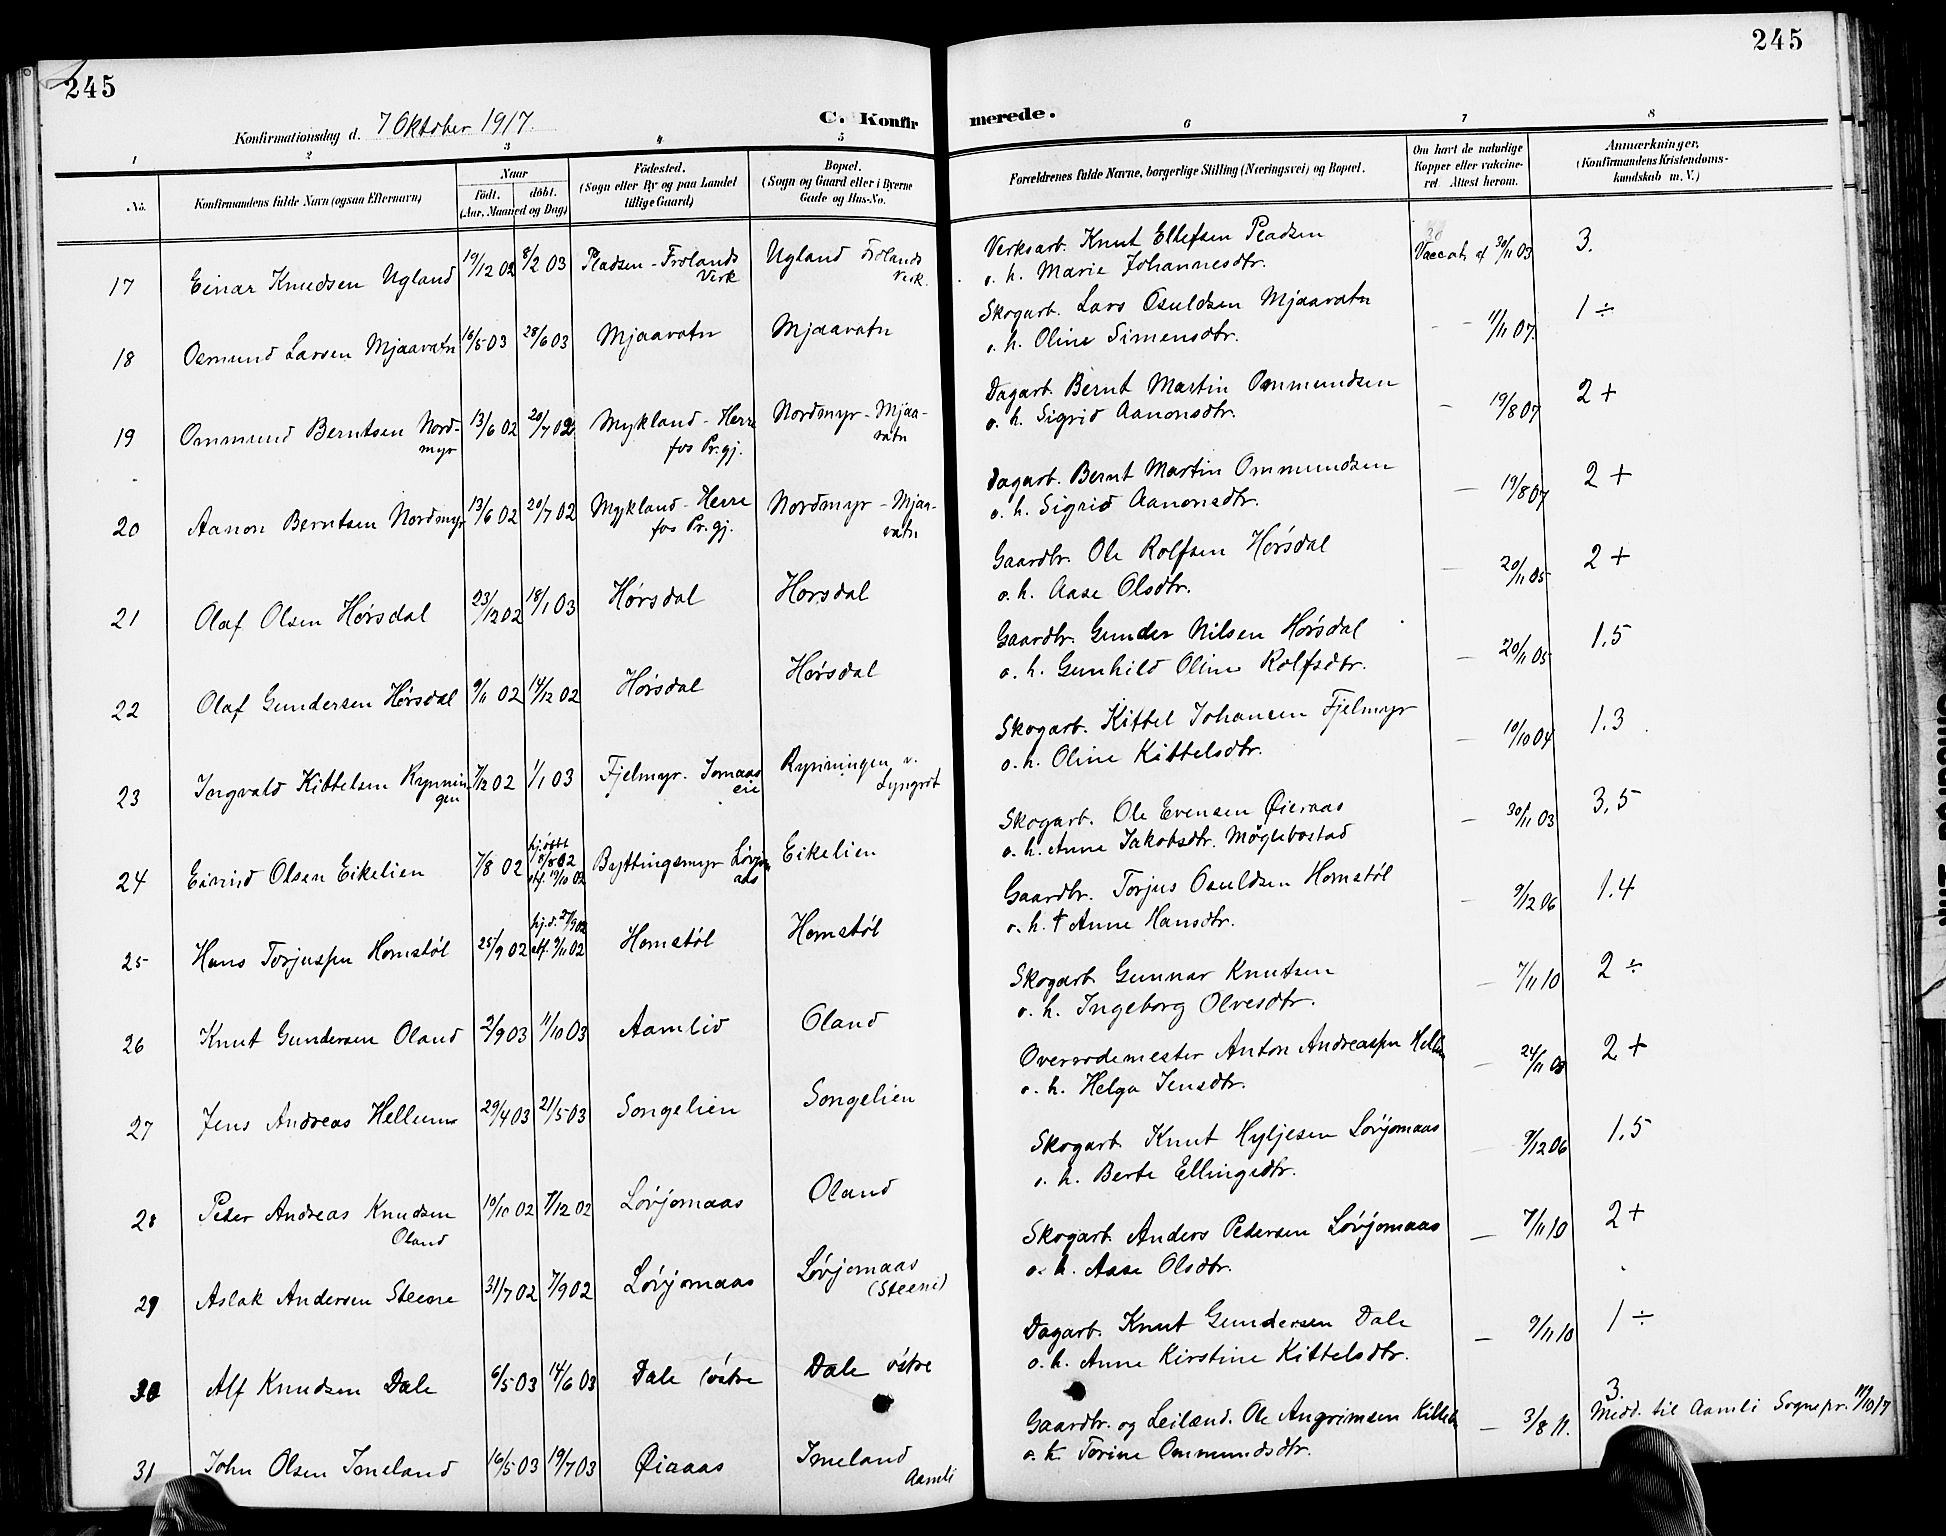 245
245
Konfirmationsdag d. 7 Oktober 1917.
C. Konfir
merede.
1
2
3
4
5
6
7
8
No.
Konfirmandens fulde Navn (ogsaa Efternavn)
Naar
født. døbt.
(Aar, Maaned og Dag)
Fødested.
(Sogn eller By og paa Landet
tillige Gaard)
Bopæl.
(Sogn og Gaard eller i Byerne
Gade og Hus-No.
Forældrenes fulde Navne, borgerlige Stilling (Næringsvei) og Bopæl.
Om havt de naturlige
Kopper eller vakcine-
ret. Attest herom.
Anmærkninger,
(Konfirmandens Kristendoms-
kundskab m. V.)
17 Einar Knudsen Ugland 19/12 02 8/2 03 Pladsen - Frolands Verk Ugland Frolands Verk.
Verksarb. Knut Ellefsen Pladsen Vaccat. af 30/11 03 3.
o. h. Marie Johannesdtr.
18 Osmund Larsen Mjaavatn 16/5 03 28/6 03 Mjaavatn Mjaavatn
Skogarb. Lars Osuldsen Mjaavatn - - 11/11 07. 1 ÷
o. h. Oline Simensdtr.
19 Ommund Berntsen Nord-
myr 13/6 02 20/7 02 Mykland - Herre
fos Pr.gj. Nordmyr - Mjaa-
vatn
Dagarb. Bernt Martin Ommundsen - 19/8 07 2 +
o. h. Sigrid Aanonsdtr.
20 Aanon Berntsen Nordmyr 13/6 02 20/7 02 Mykland - Herre
fos Pr.gj. Nordmyr - Mjaa-
vatn
Dagarb. Bernt Martin Ommundsen - 19/8 07 2 +
o. h. Sigrid Aanonsdtr.
21 Olaf Olsen Hørsdal 23/12 02 18/1 03 Hørsdal Hørsdal
Gaardbr. Ole Rolfsen Hørsdal - 20/11 05 2 +
o. h. Aase Olsdtr.
22 Olaf Gundersen Hørsdal 9/11 02 14/12 02 Hørsdal Hørsdal
Gaardbr. Gunder Nilsen Hørsdal - 20/11 05 1.5
o. h. Gunhild Oline Rolfsdtr.
23 Ingvald Kittelsen Rynnin-
gen 7/12 02 1/1 03 Fjelmyr. Jomaas
eie Rynningen v.
Lyngrot
Skogarb. Kittel Johansen Fjelmyr - 10/10 04 1.3
o. h. Oline Kittelsdtr.
24 Eivind Olsen Eikelien 7/8 02 hj.døbt
18/8 02
stf. 19/10 02 Byttingsmyr Løvjom
aas Eikelien
Skogarb. Ole Evensen Øieraas - 30/11 03 3,5
o. h. Anne Jakobsdtr. Møglebostad
25 Hans Torjusen Homstøl 25/9 02 hj.d. 27/9 02
stf. 9/11 02 Homstøl Homstøl
Gaardbr. Torjus Osuldsen Homstøl - 9/12 06 1.4
o. h. † Anne Hansdtr.
26 Knut Gundersen Oland 2/9 03 11/10 03 Aamlid Oland
Skogarb. Gunnar Knutsen - 7/11 10 2 ÷
o. h. Ingeborg Olvesdtr.
27 Jens Andreas Hellum 29/4 03 21/5 03 Songelien Songelien
Overrodemester Anton Andreasen Hellum - 24/11 08 2 +
o. h. Helga Jensdtr.
28 Peder Andreas Knudsen
Oland 10/10 02 7/12 02 Løvjomaas Oland
Skogarb. Knut Hyljesen Løvjomaas - 9/12 06 1.5
o. h. Berte Ellingsdtr.
29 Aslak Andersen Steene 31/7 02 7/9 02 Løvjomaas Løvjomaas
(Steene)
Skogarb. Anders Pedersen Løvjomaas - 7/11 10 2 +
o. h. Aase Olsdtr.
30 Alf Knudsen Dale 6/5 03 14/6 03 Dale østre Dale østre
Dagarb. Knut Gundersen Dale - 9/11 10 1 ÷
o. h. Anne Kirstine Kittelsdtr.
31 John Olsen Imeland 16/5 03 19/7 03 Øiraas Imeland
Aamli
Gaardbr. og Leilænd. Ole Angrimsen - 3/8 11. 3.
o. h. Torine Ommundsdtr. Medd. til Aamli Sognepr. 10/17